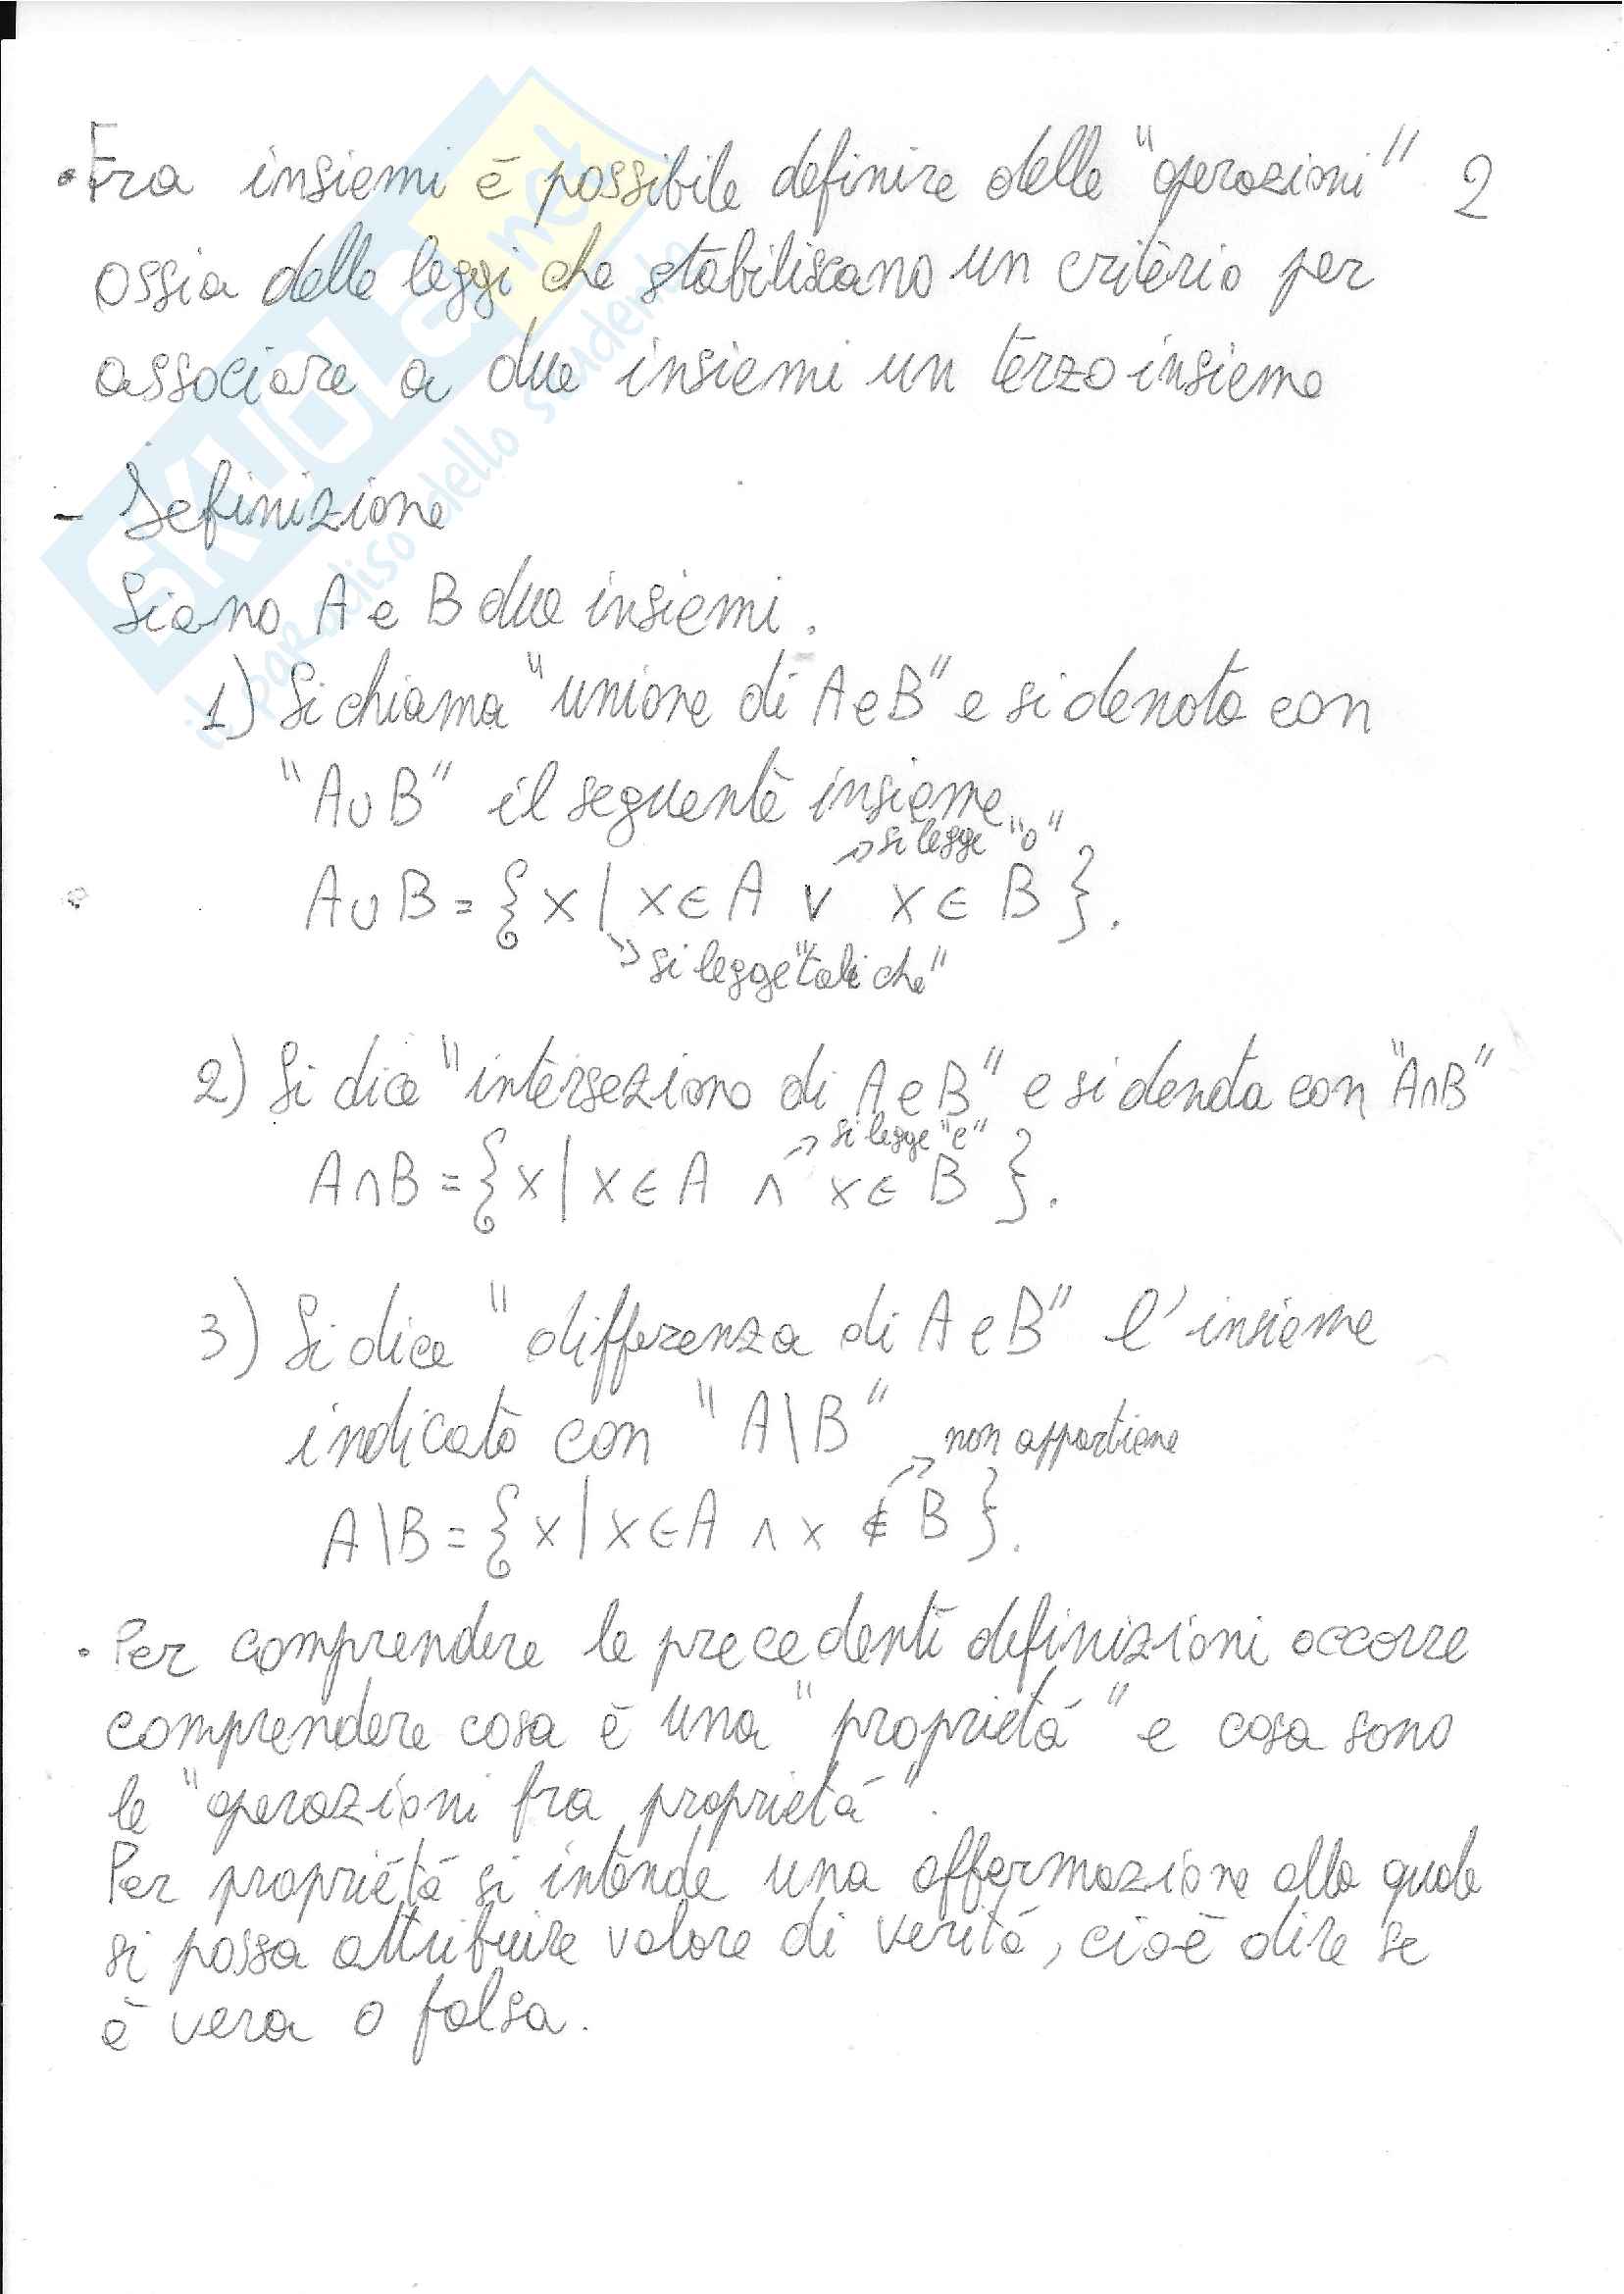 • Fra insiemi è possibile definire delle "operazioni" 2
ossia delle leggi che stabiliscano un criterio per
associare a due insiemi un terzo insieme
- Definizione
Siano A e B due insiemi.
1) Si chiama "unione di A e B" e si denota con
"A∪B" il seguente insieme
→ si legge "o"
A∪B = {x | x∈A ∨ x∈B}.
→ si legge "tali che"
2) Si dice "intersezione di A e B" e si denota con "A∩B"
→ si legge "e"
A∩B = {x | x∈A ∧ x∈B}.
3) Si dice "differenza di A e B" l'insieme
indicato con "A\B"
→ non appartiene
A\B = {x | x∈A ∧ x∉B}.
• Per comprendere le precedenti definizioni occorre
comprendere cosa è una "proprietá" e cosa sono
le "operazioni fra proprietá".
Per proprietá si intende una affermazione alla quale
si possa attribuire valore di veritá, cioè dire se
è vera o falsa.
SKUOLA.net
il paradiso dello studente